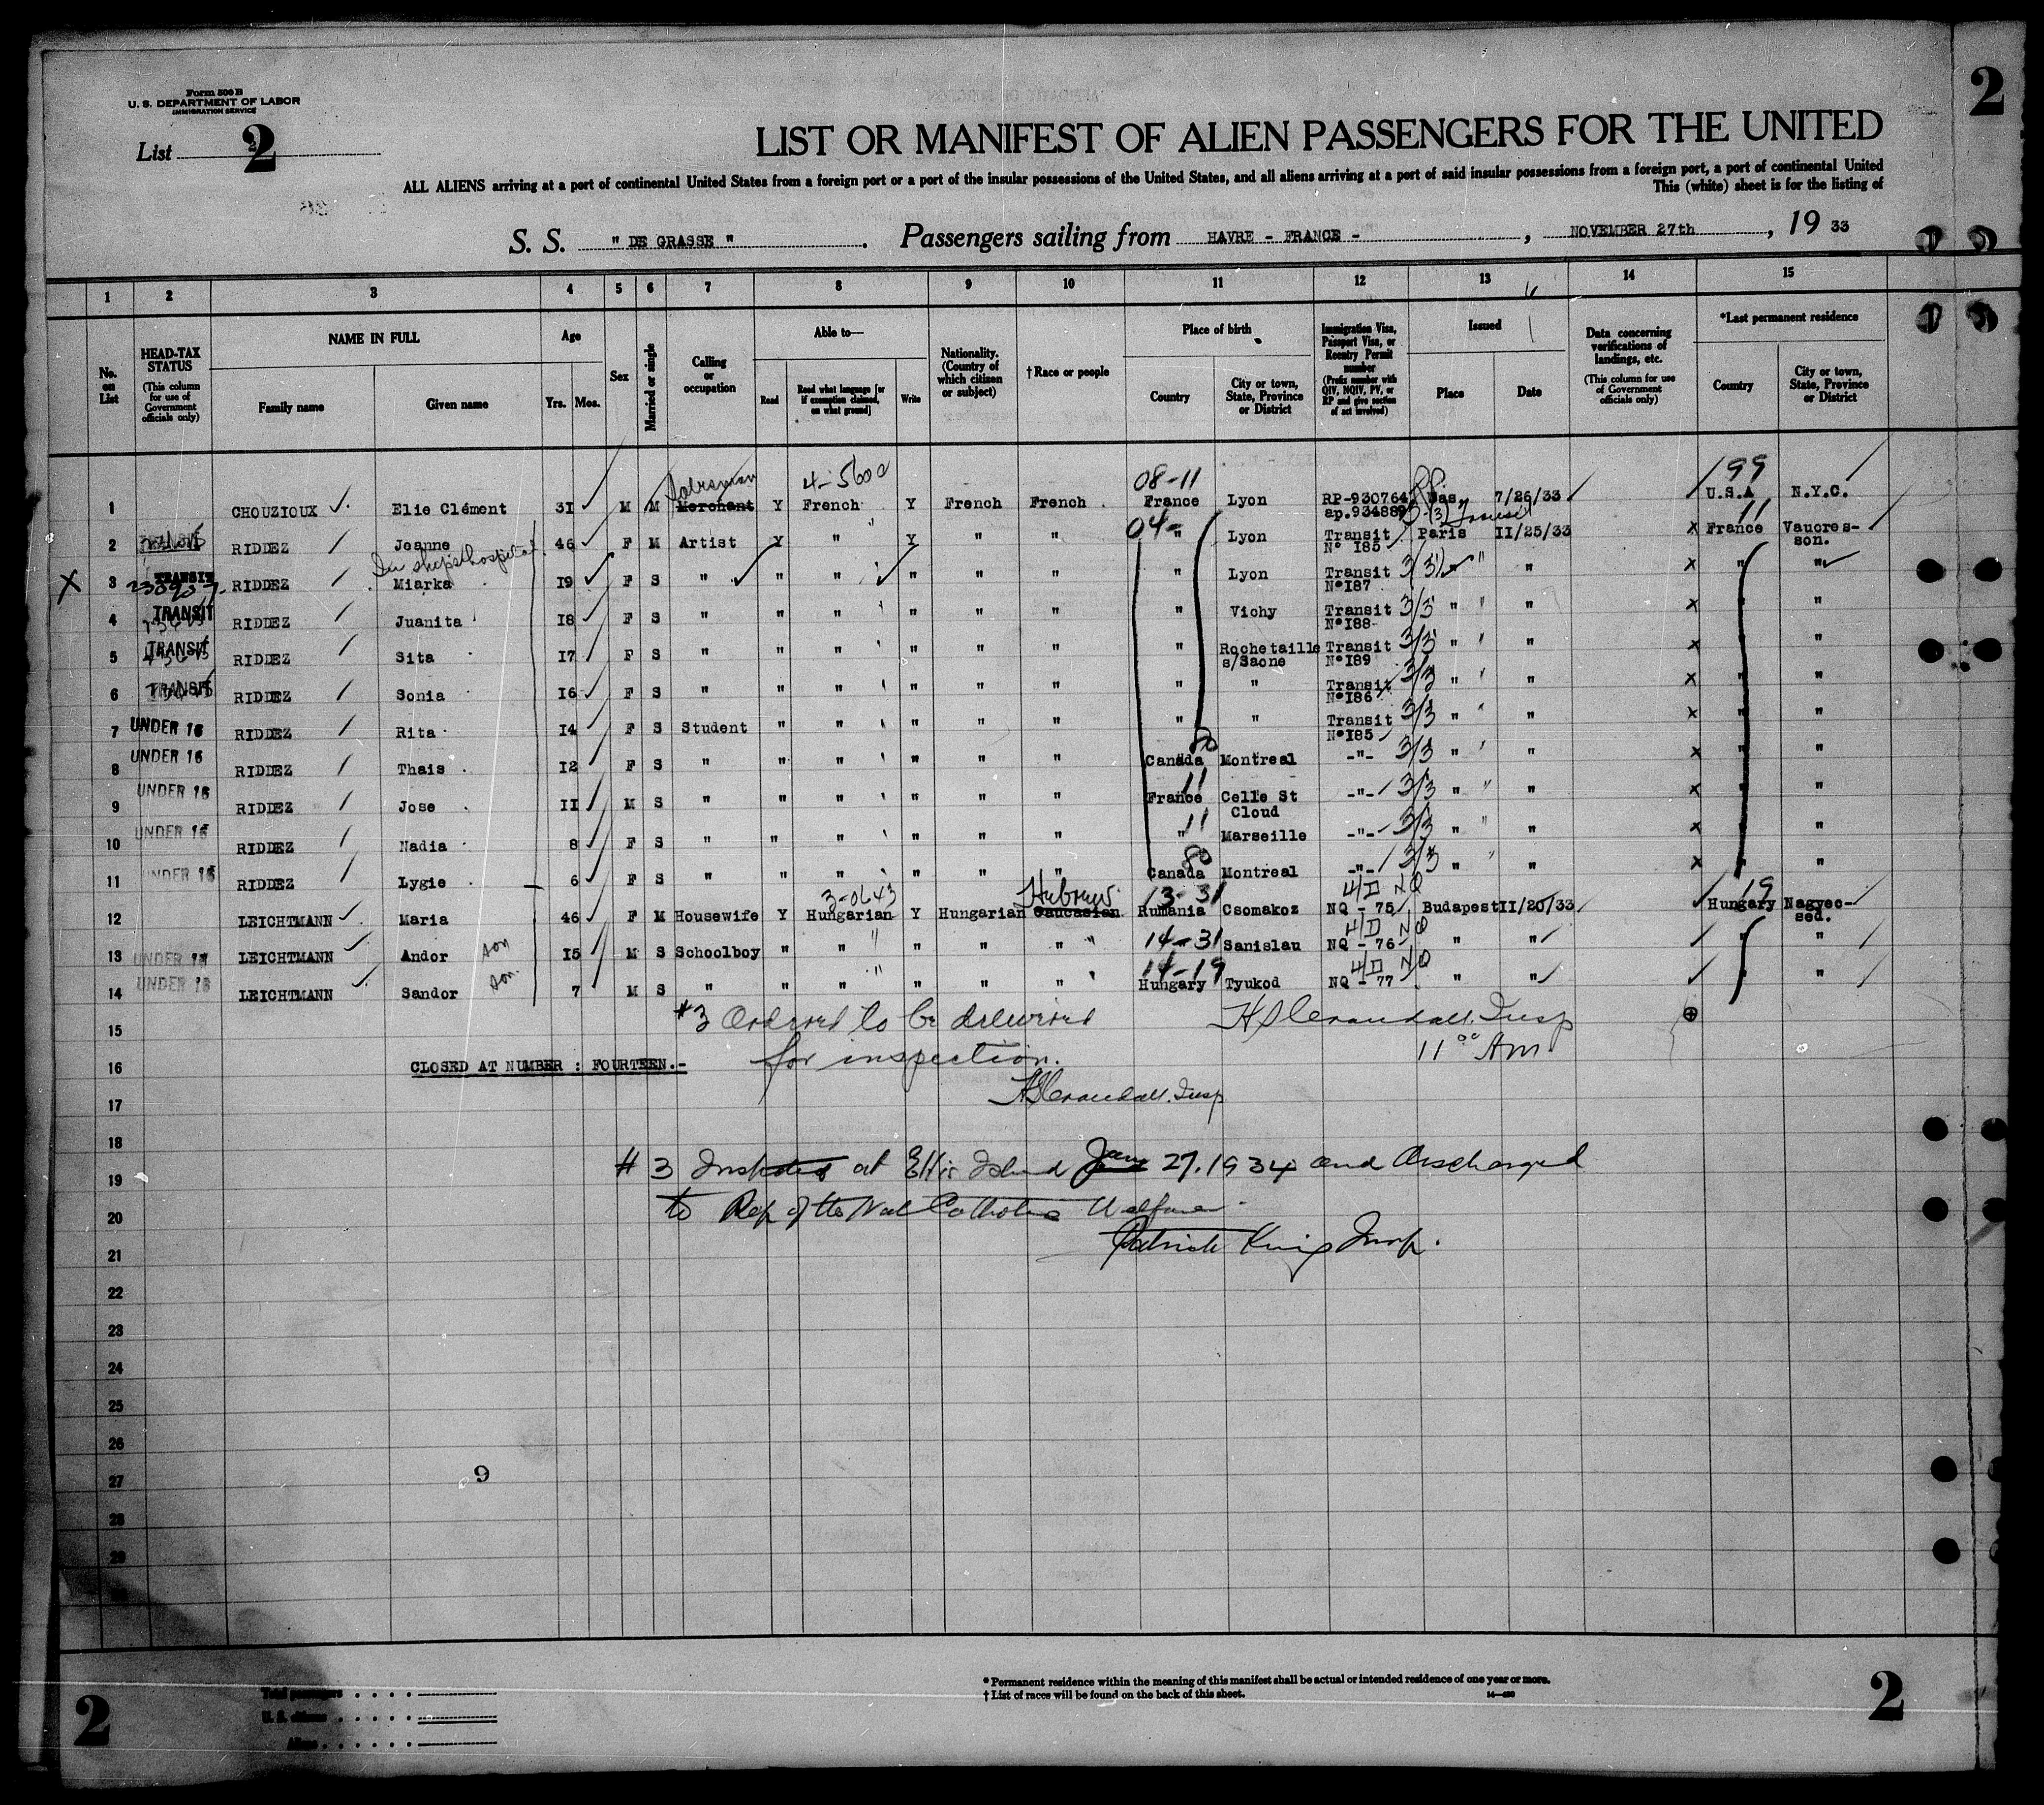 Form 500 B
U. S. DEPARTMENT OF LABOR
IMMIGRATION SERVICE
List 2
2
LIST OR MANIFEST OF ALIEN PASSENGERS FOR THE UNITED
ALL ALIENS arriving at a port of continental United States from a foreign port or a port of the insular possessions of the United States, and all aliens arriving at a port of said insular possessions from a foreign port, a port of continental United
This (white) sheet is for the listing of
S. S. " DE GRASSE ". Passengers sailing from HAVRE - FRANCE - , NOVEMBER 27th , 19 33
1 2 3 4 5 6 7 8 9 10 11 12 13 14 15
No. on List
HEAD-TAX STATUS
(This column for use of Government officials only)
NAME IN FULL
Family name
Given name
Age
Yrs. Mos.
Sex
Married or single
Calling or occupation
Able to—
Read
Read what language [or if exemption claimed, on what ground]
Write
Nationality. (Country of which citizen or subject)
† Race or people
Place of birth
Country
City or town, State, Province or District
Immigration Visa, Passport Visa, or Reentry Permit number
(Prefix number with QIV, NQIV, PV, or RP and give section of act involved)
Issued
Place
Date
Data concerning verifications of landings, etc.
(This column for use of Government officials only)
*Last permanent residence
Country
City or town, State, Province or District
Salesman 4-5600 08-11 199
1 CHOUZIOUX Elie Clément 31 M M Merchant Y French Y French French France Lyon RP-930764 ap.934889 Was. 7/26/33 U.S.A N.Y.C.
04- 11
2 RIDDEZ Jeanne 46 F M Artist Y " Y " " " Lyon Transit N° 185 Paris II/25/33 x France Vaucres-son.
In ships hospital
X 3 TRANSIT RIDDEZ Miarka 19 F S " " " " " " " Lyon Transit N°187 3/3 " " x " "
4 TRANSIT RIDDEZ Juanita 18 F S " " " " " " " Vichy Transit N°188 3/3 " " x " "
5 TRANSIT RIDDEZ Sita 17 F S " " " " " " " Rochetaille s/Saone Transit N°189 3/3 " " x " "
6 TRANSIT RIDDEZ Sonia 16 F S " " " " " " " " Transit N°186 3/3 " " x " "
7 UNDER 16 RIDDEZ Rita 14 F S Student " " " " " " " Transit N°185 3/3 " " x " "
8 UNDER 16 RIDDEZ Thais 12 F S " " " " " " Canada Montreal -"- 3/3 " " x " "
9 UNDER 16 RIDDEZ Jose II M S " " " " " " France Celle St Cloud -"- 3/3 " " x " "
10 UNDER 16 RIDDEZ Nadia 8 F S " " " " " " " Marseille -"- 3/3 " " x " "
11 UNDER 16 RIDDEZ Lygie 6 F S " " " " " " Canada Montreal -"- 3/3 " " x " "
3-0643 Hebrew 13-31 4/D NQ 19
12 LEICHTMANN Maria 46 F M Housewife Y Hungarian Y Hungarian Caucasian Rumania Csomakoz NQ - 75 Budapest II/20/33 Hungary Nagyec-sed.
14-31 4/D NQ
13 UNDER 16 LEICHTMANN Andor son 15 M S Schoolboy " " " " " Sanislau NQ - 76 " " " "
14-19 4/D NQ
14 UNDER 16 LEICHTMANN Sandor son 7 M S " " " " " " Hungary Tyukod NQ - 77 " " " "
#3 Ordered to be delivered H S Crandall. Insp
15
for inspection. 11 00 AM
16 CLOSED AT NUMBER : FOURTEEN.-
H S Crandall. Insp
17
18
# 3 Inspected at Ellis Island Jany 27. 1934 and discharged
19
to Rep of the Nat Catholic Welfare
20
Patrick King Insp.
21
22
23
24
25
26
27
9
28
29
Total passengers
U. S. citizens
Aliens
* Permanent residence within the meaning of this manifest shall be actual or intended residence of one year or more.
† List of races will be found on the back of this sheet.
2
2